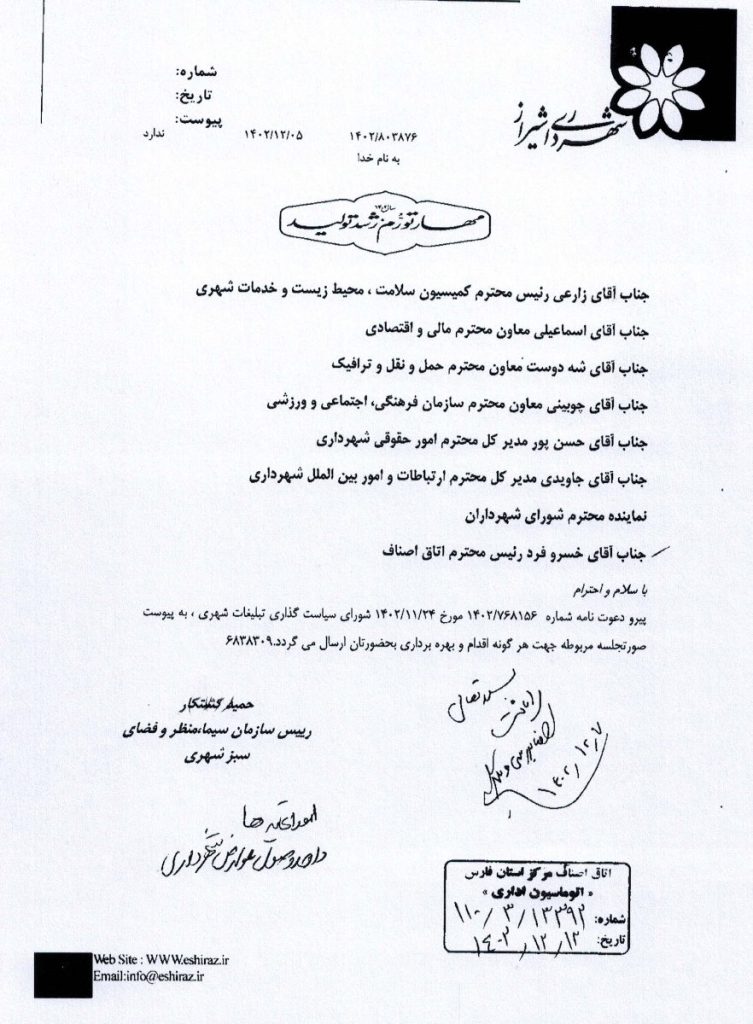 شهرداری شیراز
شماره:
تاریخ:
پیوست:
۱۴۰۲/۸۰۳۸۷۶
۱۴۰۲/۱۲/۰۵
ندارد
به نام خدا
مهار تورم رشد تولید
جناب آقای زارعی رئیس محترم کمیسیون سلامت ، محیط زیست و خدمات شهری
جناب آقای اسماعیلی معاون محترم مالی و اقتصادی
جناب آقای شه دوست معاون محترم حمل و نقل و ترافیک
جناب آقای چوبینی معاون محترم سازمان فرهنگی، اجتماعی و ورزشی
جناب آقای حسن پور مدیر کل محترم امور حقوقی شهرداری
جناب آقای جاویدی مدیر کل محترم ارتباطات و امور بین الملل شهرداری
نماینده محترم شورای شهرداران
جناب آقای خسرو فرد رئیس محترم اتاق اصناف
با سلام و احترام
پیرو دعوت نامه شماره ۱۴۰۲/۷۶۸۱۵۶ مورخ ۱۴۰۲/۱۱/۲۴ شورای سیاست گذاری تبلیغات شهری ، به پیوست
صورتجلسه مربوطه جهت هر گونه اقدام و بهره برداری بحضورتان ارسال می گردد.۶۸۳۸۳۰۹
حمید
رییس سازمان سیما،منظر و فضای
سبز شهری
۱۴۰۲/۱۲/۷
عوارض شهرداری
اتاق اصناف مرکز استان فارس
« اتوماسیون اداری »
شماره: ۱۱۰/۳/۱۳۳۹۲
تاریخ: ۱۴۰۲/۱۲/۱۲
Web Site : WWW.eshiraz.ir
Email:info@eshiraz.ir